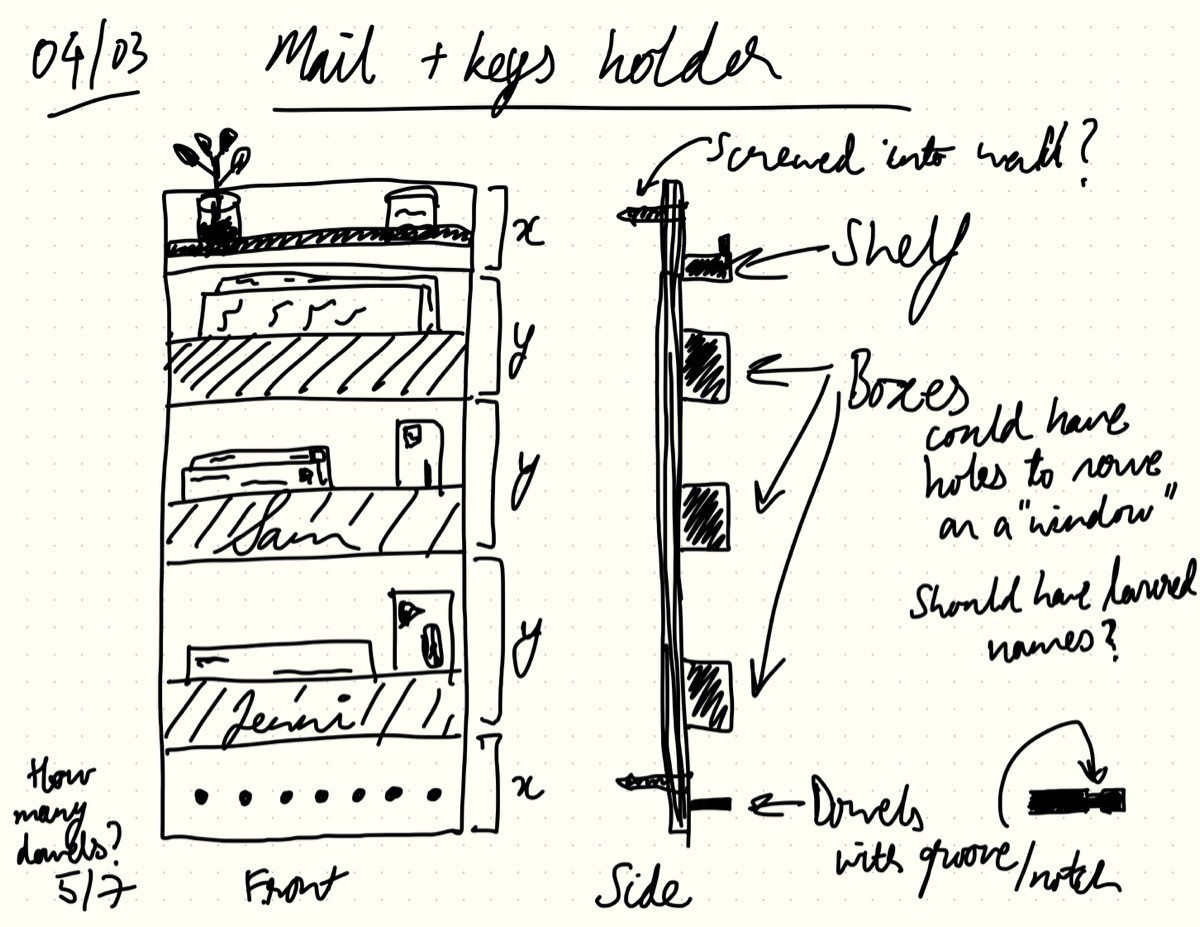 04/03
Mail + keys holder
Screwed into wall?
x
Shelf
y
Boxes
could have
holes to serve
as a "window"
y
Sam
Should have lasered
names?
y
Jenni
x
How
many
dowels?
5/7
Dowels
with groove/notch
Front
Side